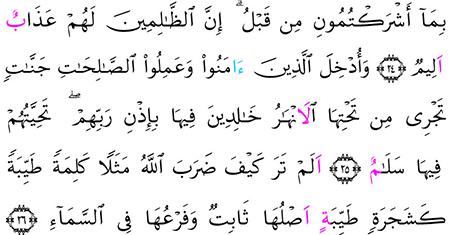 بِمَآ أَشْرَكْتُمُونِ مِن قَبْلُ ۗ إِنَّ الظَّٰلِمِينَ لَهُمْ عَذَابٌ
اَلِيمٌ ﴿٢٤﴾ وَأُدْخِلَ الَّذِينَ ءَامَنُوا وَعَمِلُوا الصَّٰلِحَٰتِ جَنَّٰتٍ
تَجْرِى مِن تَحْتِهَا الَانْهَٰرُ خَٰلِدِينَ فِيهَا بِإِذْنِ رَبِّهِمْ ۖ تَحِيَّتُهُمْ
فِيهَا سَلَٰمٌ ﴿٢٥﴾ اَلَمْ تَرَ كَيْفَ ضَرَبَ اللَّهُ مَثَلًا كَلِمَةً طَيِّبَةً
كَشَجَرَةٍ طَيِّبَةٍ اَصْلُهَا ثَابِتٌ وَفَرْعُهَا فِى السَّمَآءِ ﴿٢٦﴾